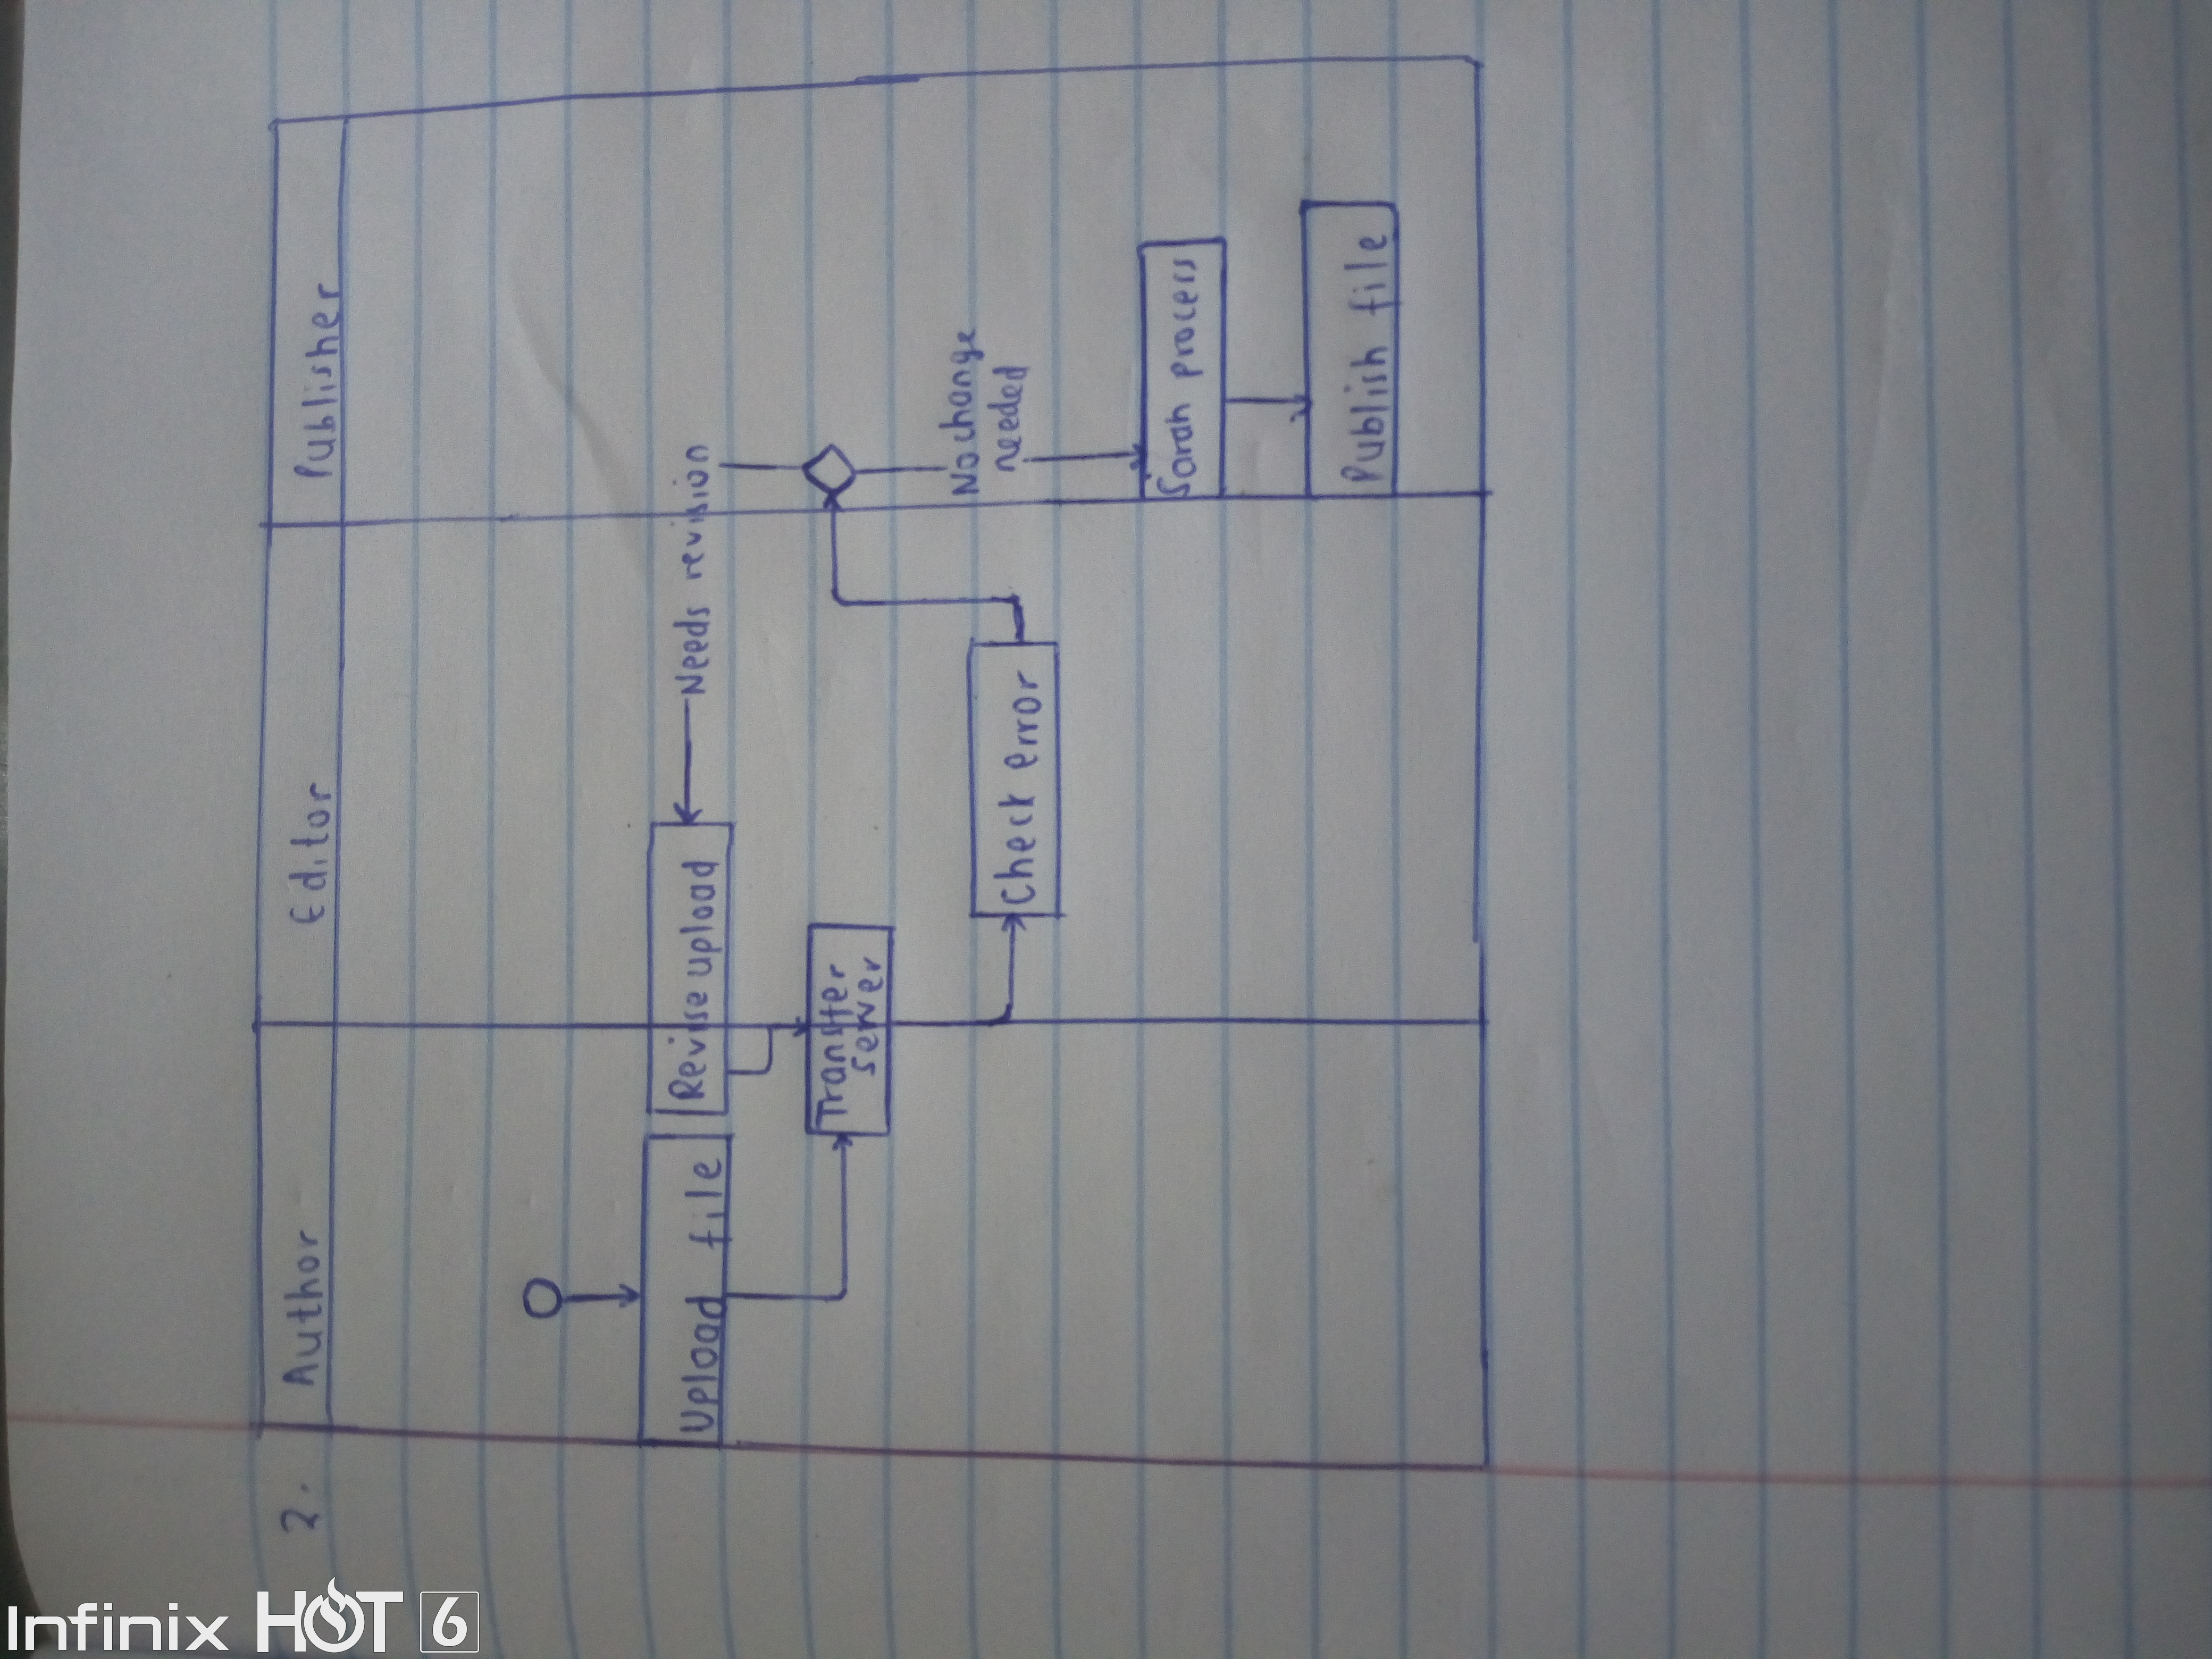 2.
Author
Editor
Publisher
Upload file
Revise upload
Needs revision
Transfer
server
Check error
No change
needed
Sarah process
Publish file
Infinix HOT 6